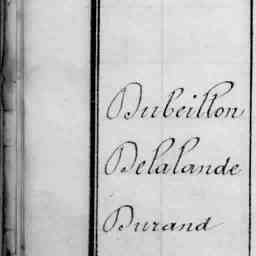 Dubeillon
Delalande
Durand